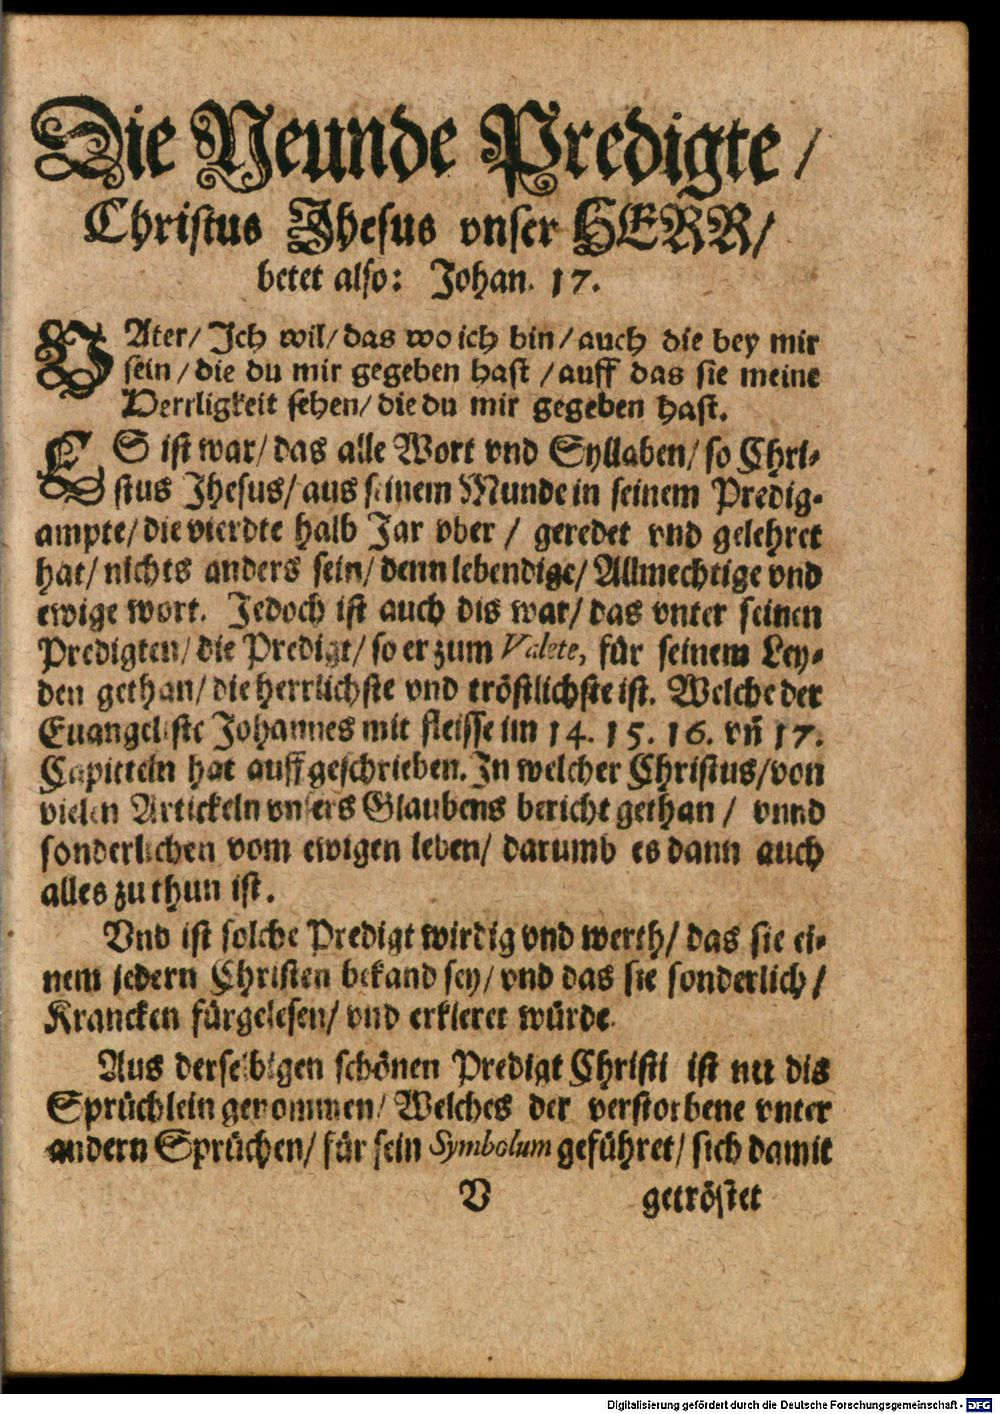 Die Neunde Predigte /
Christus Jhesus vnser HERR/
betet also: Johan. 17.
VAter/ Jch wil/ das wo ich bin/ auch die bey mir
sein / die du mir gegeben hast / auff das sie meine
Herrligkeit sehen/ die du mir gegeben hast.
ES ist war/ das alle Wort vnd Syllaben/ so Chri-
stus Jhesus/ aus seinem Munde in seinem Predig-
ampte/ die vierdte halb Jar vber / geredet vnd gelehret
hat/ nichts anders sein/ denn lebendige/ Allmechtige vnd
ewige wort. Jedoch ist auch dis war/ das vnter seinen
Predigten/ die Predigt/ so er zum Valete, für seinem Ley-
den gethan/ die herrlichste vnd tröstlichste ist. Welche der
Euangeliste Johannes mit fleisse im 14. 15. 16. vñ 17.
Capitteln hat auffgeschrieben. Jn welcher Christus/ von
vielen Artickeln vnsers Glaubens bericht gethan / vnnd
sonderlichen vom ewigen leben/ darumb es dann auch
alles zu thun ist.
Vnd ist solche Predigt wirdig vnd werth/ das sie ei-
nem jedern Christen bekand sey/ vnd das sie sonderlich /
Krancken fürgelesen/ vnd erkleret würde.
Aus derselbigen schönen Predigt Christi ist nu dis
Sprüchlein genommen/ Welches der verstorbene vnter
andern Sprüchen/ für sein Symbolum geführet/ sich damit
V getröstet
Digitalisierung gefördert durch die Deutsche Forschungsgemeinschaft - DFG